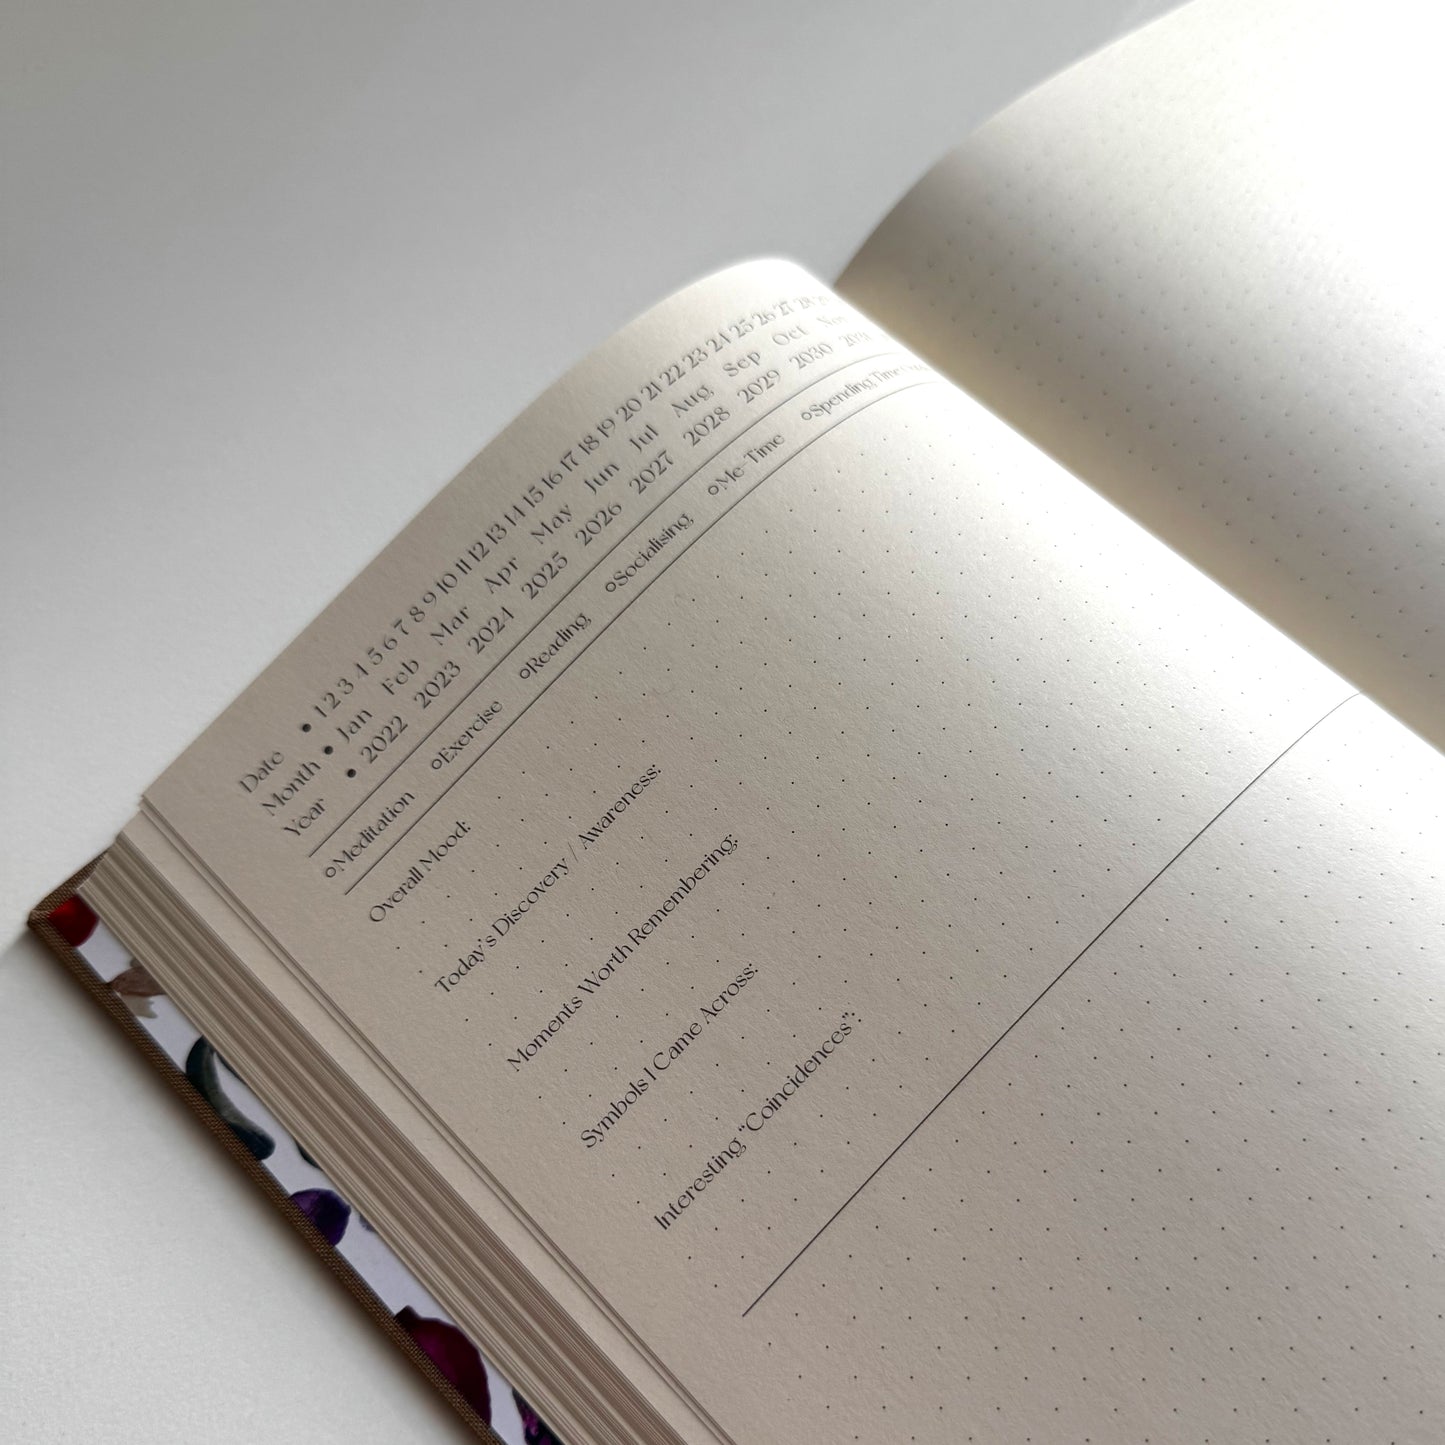 Date • 1 2 3 4 5 6 7 8 9 10 11 12 13 14 15 16 17 18 19 20 21 22 23 24 25 26 27 28
Month • Jan Feb Mar Apr May Jun Jul Aug Sep Oct Nov
Year • 2022 2023 2024 2025 2026 2027 2028 2029 2030 2031
Meditation Exercise Reading Socialising Me-Time Spending Time
Overall Mood:
Today's Discovery / Awareness:
Moments Worth Remembering:
Symbols I Came Across:
Interesting "Coincidences":